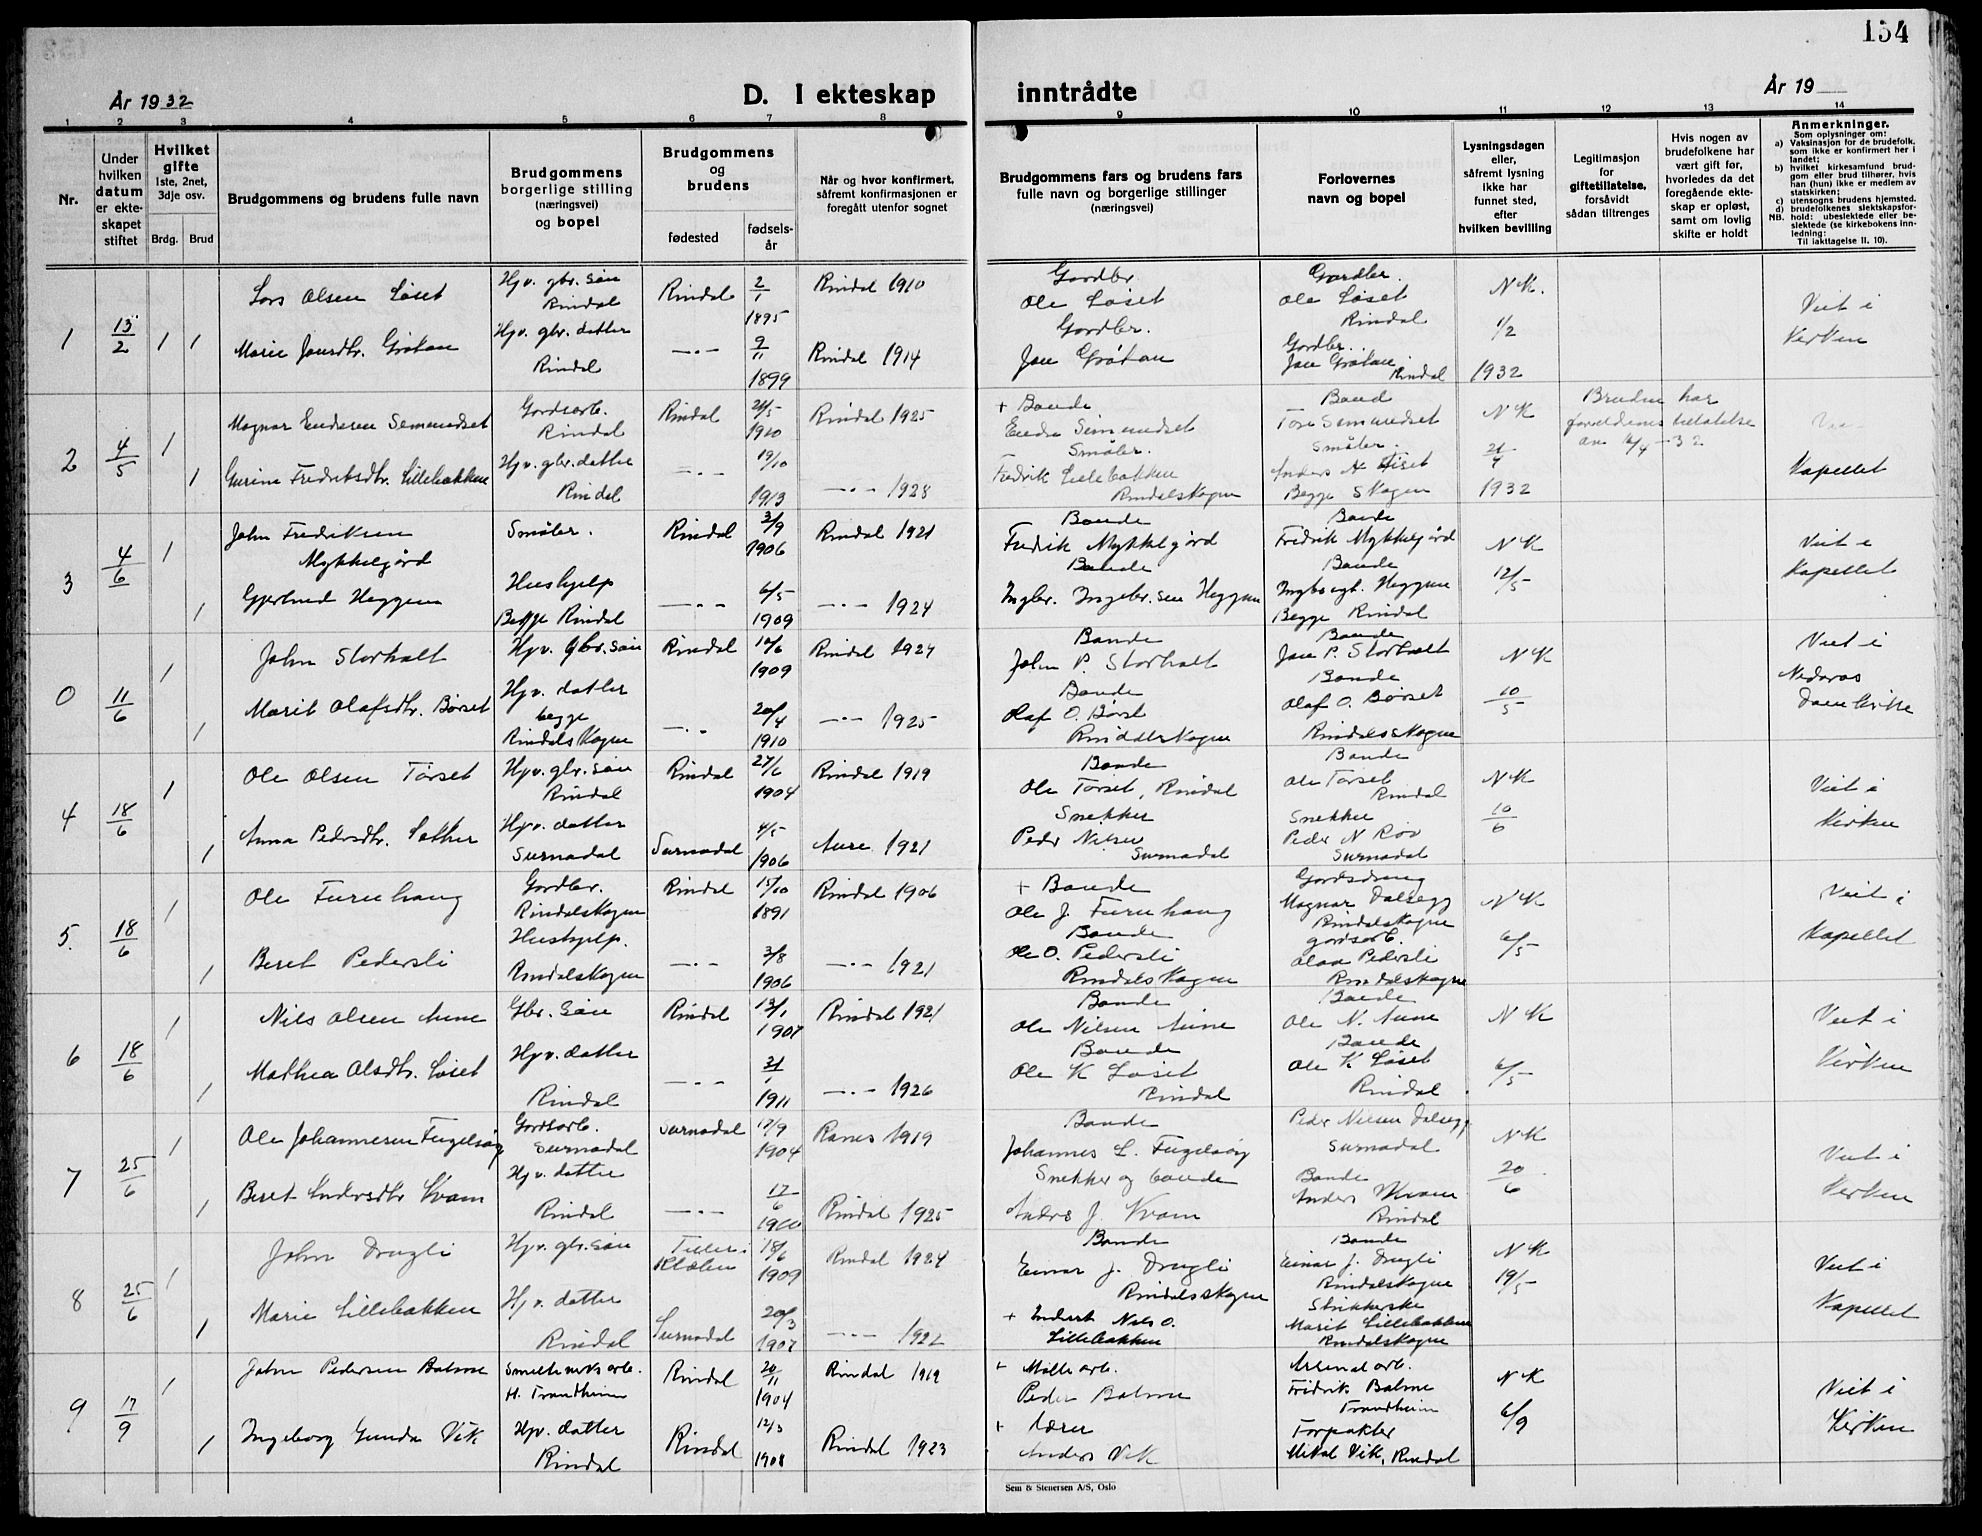 154
År 1932
D. I ekteskap inntrådte
År 19
1 2 3 4 5 6 7 8 9 10 11 12 13 14
Nr.
Under hvilken datum er ekteskapet stiftet
Hvilket gifte 1ste, 2net, 3dje osv.
Brdg. Brud
Brudgommens og brudens fulle navn
Brudgommens borgerlige stilling (næringsvei) og bopel
Brudgommens og brudens
fødested
fødselsår
Når og hvor konfirmert, såfremt konfirmasjonen er foregått utenfor sognet
Brudgommens fars og brudens fars fulle navn og borgerlige stillinger (næringsvei)
Forlovernes navn og bopel
Lysningsdagen eller, såfremt lysning ikke har funnet sted, efter hvilken bevilling
Legitimasjon for giftetillatelse, forsåvidt sådan tiltrenges
Hvis nogen av brudefolkene har vært gift før, hvorledes da det foregående ekteskap er opløst, samt om lovlig skifte er holdt
Anmerkninger.
Som oplysninger om:
a) Vaksinasjon for de brudefolk, som ikke er konfirmert her i landet;
b) hvilket kirkesamfund brudgom eller brud tilhører, hvis han (hun) ikke er medlem av statskirken;
c) utensogns brudens hjemsted.
d) brudefolkenes slektskapsforhold: ubeslektede eller beslektede (se kirkebokens innledning:
NB. Til iakttagelse II. 10).
1 13/2 1 Lars Olsen Løset Hjv. gbr. søn Rindal Rindal 2/1 1895 Rindal 1910 Gardbr. Ole Løset Gardbr. Ole Løset Rindal N K. 1/2 1932 Viet i Kirken
1 Marie Jonsdtr. Grøtan Hjv. gbr. datter Rindal —"— 9/11 1899 Rindal 1914 Gardbr. Jon Grøtan Gardbr. Jon Grøtan Rindal
2 4/5 1 Magnar Endresen Semundset Gardsarb. Rindal Rindal 1910 Rindal 1925 + Bonde Endre Semundset Bond Tore Semundset N K 21/4 1932 Bruden har foreldrenes tillatelse av 16/4-32 Kapellet
1 Gurine Fredriksdtr. Lillebakken Hjv. gbr. datter Rindal —"— 19/10 1913 —"— 1928 Småbr. Fredrik Lillebakken Rindalskogen Småbr. Anders Begge Skogen
3 4/6 1 John Fredriksen Mykkelgård Småbr. Rindal 3/9 1906 Rindal 1921 Bonde Fredrik Mykkelgård Bonde Fredrik Mykkelgård N K 12/5 Viet i Kapellet
1 Gjertrud Heggem Hushjelp Begge Rindal —"— 6/5 1909 —"— 1924 Bonde Ingbr. Ingebr.sen Heggem Bonde Heggem Begge Rindal
0 11/6 1 John Storholt Hjv. gbr. søn Rindal 1909 Rindal 1924 Bonde John P. Storholt Bonde Jon P. Storholt N K 10/5 Viet i Nidaros Domkirke
1 Marit Olafsdtr. Børset Hjv. datter begge Rindalskogen —"— 20/4 1910 —"— 1925 Bonde Olaf O. Børset Rindalskogen Bonde Olaf O. Børset Rindalsskogen
4 18/6 1 Ole Olsen Tørset Hjv. gbr. søn Rindal Rindal 27/6 1904 Rindal 1919 Bonde Ole Tørset, Rindal Bonde Ole Tørset Rindal N K 10/6 Viet i Kirken
1 Anna Pedersdtr. Sæther Hjv. datter Surnadal Surnadal 4/5 1906 Aure 1921 Snekker Peder Nilsen Surnadal Snekker Peder N Røv Surnadal
5. 18/6 1 Ole Furuhaug Gardbr. Rindalskogen Rindal 15/10 1891 Rindal 1906 + Bonde Ole J. Furuhaug Gardsdreng Magnar Dalsegg Rindalskogen N K 6/5 Viet i Kapellet
1 Beret Pedersli Hushjelp. Rindalskogen —"— 3/8 1906 —"— 1921 Bonde Ole O. Pedersli Rindalskogen gardsarb. Olaa Pedersli Rindalskogen
6 18/6 1 Nils Olsen Aune Gbr. søn Rindal 13/1 1907 Rindal 1921 Bonde Ole Nilsen Aune Bonde Ole N. Aune N K 6/5 Viet i Kirken
1 Mathea Olsdtr. Løset Hjv. datter Rindal —"— 1911 —"— 1926 Bonde Ole K Løset Rindal Bonde Ole K Løset Rindal
7 25/6 1 Ole Johannesen Fugelsøy Gardsarb. Surnadal Surnadal 17/9 1904 Ranes 1919 Bonde Johannes L. Fugelsøy Peder Nilsen Dalsegg Surnadal N K 20/6 Viet i Kirken
1 Beret Andersdtr Kvam Hjv. datter Rindal —"— 17/6 1910 Rindal 1925 Snekker og bonde Anders J. Kvam Bonde Anders Kvam Rindal
8 25/6 1 John Drugli Hjv. gbr. søn Tiller i Klæbu 18/6 1909 Rindal 1924 Bonde Einar J. Drugli Rindalsskogen Bonde Einar J. Drugli Rindalskogen N K 19/5 Viet i Kapellet
1 Marie Lillebakken Hjv. datter Rindal Surnadal 20/3 1907 —"— 1922 + Inderst Nils O. Lillebakken Strikkerske Marit Lillebakken Rindalskogen
9 17/9 1 John Pedersen Bolme Smelteverks arb. H. Trondheim Rindal 20/11 1904 Rindal 1919 + Mølle arb. Peder Bolme Arsenal arb. Fridrik Bolme Trondheim N K 6/9 Viet i Kirken
1 Ingeborg Gunda Vik Hjv. datter Rindal Rindal 12/3 1908 Rindal 1923 + Lærer Anders Vik Forpakter Mikal Vik, Rindal
Sem & Stenersen A/S, Oslo